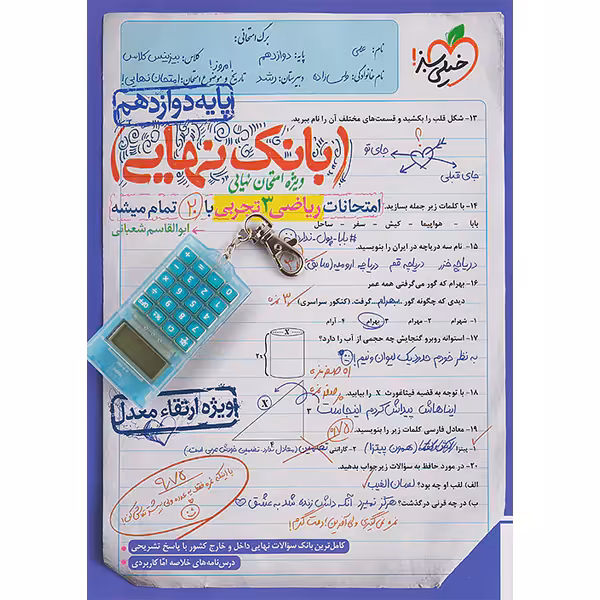 خیلی سبز!
برگ امتحانی:
نام: پایه: دوازدهم کلاس: بیزینس کلاس
امروز!
نام خانوادگی: ولی زاده دبیرستان: رشد تاریخ و موضوع امتحان: امتحان نهایی!
پایه دوازدهم
۱۳- شکل قلب را بکشید و قسمت‌های مختلف آن را نام ببرید.
؟
جای تو
جای قبلی
(بانک نهایی)
ویژه امتحان نهایی
۱۴- با کلمات زیر جمله بسازید.
امتحانات ریاضی ۳ تجربی با ۲۰ تمام میشه
بابا - هواپیما - کیش - سفر - ساحل
ابوالقاسم شعبانی
#بابا-پول-نداره
۱۵- نام سه دریاچه در ایران را بنویسید.
دریاچه خزر دریاچه قم دریاچه ارومیه (سابق)
۱۶- بهرام که گور می‌گرفتی همه عمر
دیدی که چگونه گور بهرام گرفت. (کنکور سراسری)
۳ نمره
۱- شهرام ۲- مهرام ۳- بهرام ۴- آرام
۱۷- استوانه روبرو گنجایش چه حجمی از آب را دارد؟
x
به نظر خودم حدود یک لیوان و نیم!
۱۸- با توجه به قضیه فیثاغورت x را بیابید.
صفر نمره
x
۳
ایناهاش پیداش کردم اینجاست
ویژه ارتقاء معدل
۱۹- معادل فارسی کلمات زیر را بنویسید.
۱- پیتزا (همون پیتزا) ۲- گارانتی تضمین
۲۰- در مورد حافظ به سؤالات زیر جواب بدهید.
الف) لقب او چه بود؟ لسان الغیب
ب) در چه قرنی درگذشت؟ هرگز نمیرد آنکه دلش زنده شد به عشق
۹/۷۵
کامل‌ترین بانک سؤالات نهایی داخل و خارج کشور با پاسخ تشریحی
درس‌نامه‌های خلاصه امّا کاربردی